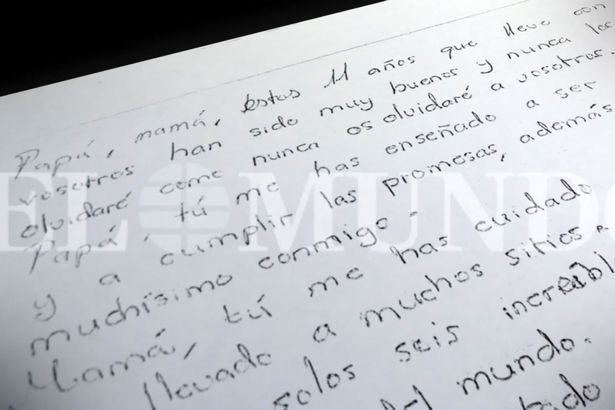 Papá, mamá, éstos 11 años que llevo con
vosotros han sido muy buenos y nunca los
olvidaré como nunca os olvidaré a vosotros.
Papá, tú me has enseñado a ser
y a cumplir las promesas, además
muchísimo conmigo.
Mamá, tú me has cuidado
llevado a muchos sitios.
solos seis increíbl
del mundo.
EL MUNDO